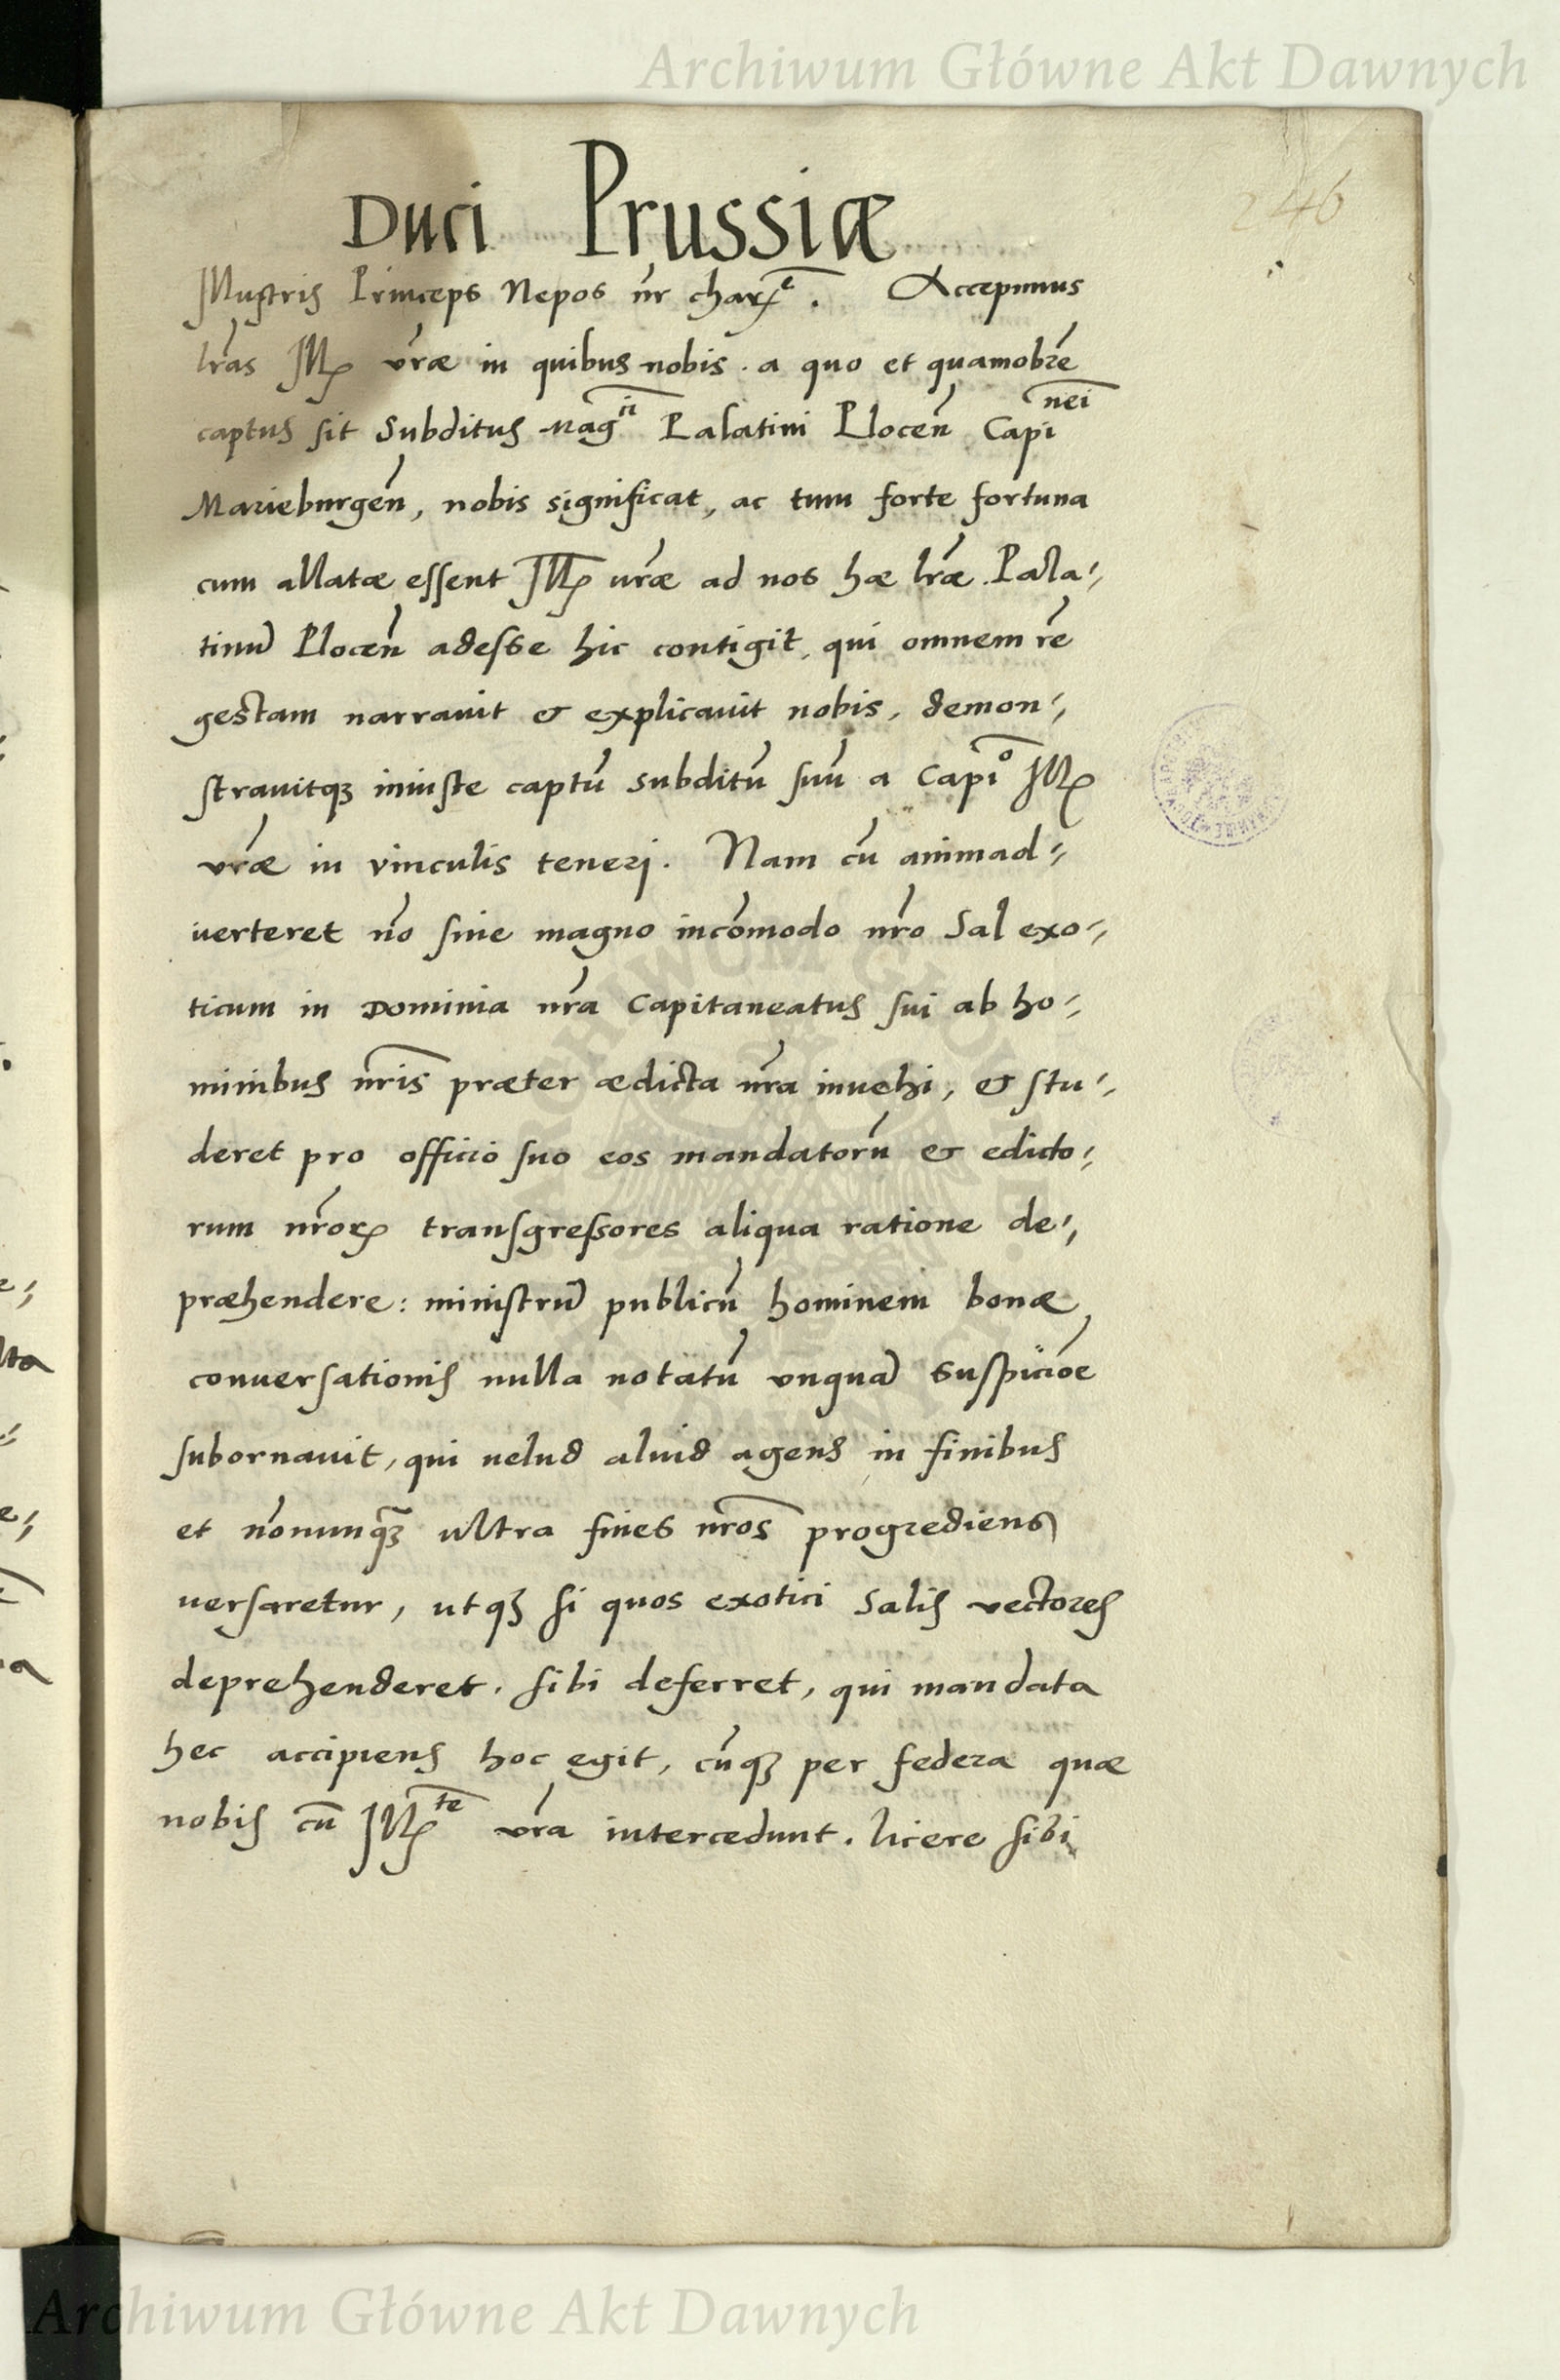 Archiwum Główne Akt Dawnych
246
Duci Prussiæ
Illustris Princeps Nepos nr̃ charꝫᵉ. Accepimus
lr̃as Illꝫ vr̃æ in quibus nobis. a quo et quamobrẽ
captus sit Subditus Mag^ci Palatini Plocen̄ Capi^nei
Marieburgen̄, nobis significat, ac tum forte fortuna
cum allatæ essent Illꝫ vr̃æ ad nos hæ lr̃æ. Pala⸗
tinũ Plocen̄ adesse hic contigit, qui omnem rẽ
gestam narravit & explicauit nobis, demon⸗
stravitqꝫ iniuste captũ subditũ suũ a Capi^o Illꝫ
vr̃æ in vinculis teneri. Nam cũ animad⸗
uerteret nõ sine magno incõmodo nr̃o Sal exo⸗
ticum in Dominia nr̃a Capitaneatus sui ab ho⸗
minibus nr̃is præter ædicta nr̃a inuehi, & stu⸗
deret pro officio suo eos mandatorũ & edicto⸗
rum nr̃oꝝ transgressores aliqua ratione de⸗
præhendere: ministrũ publicũ hominem bonæ
conuersationis nulla notatũ vnquã suspiciõe
subornauit, qui uelud aluid agens in finibus
et nõnunqꝫ ultra fines nr̃os progrediens
uersaretur, utqꝫ si quos exotici Salis vectores
deprehenderet. sibi deferret, qui mandata
hec accipiens hoc egit, cũqꝫ per federa quæ
nobis cũ Illꝫ^te vr̃a intercedunt. licere sibi
Archiwum Główne Akt Dawnych